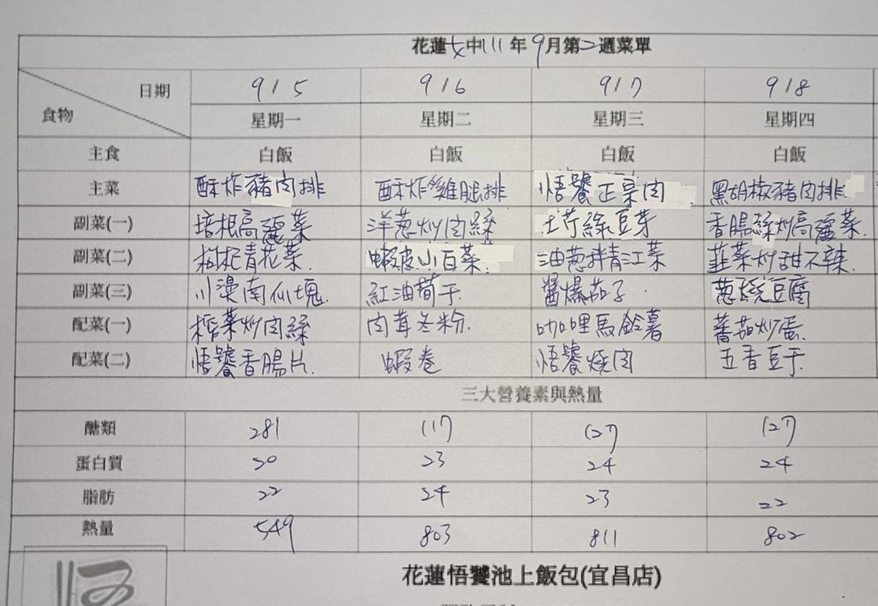 花蓮女中111年9月第二週菜單
日期 9/5 9/6 9/7 9/8
食物 星期一 星期二 星期三 星期四
主食 白飯 白飯 白飯 白飯
主菜 酥炸豬肉排 酥炸雞腿排 悟饕正泉肉 黑胡椒豬肉排
副菜(一) 培根高麗菜 洋葱炒肉絲 土芹絲豆芽 香腸絲炒高麗菜
副菜(二) 枸杞青花菜 蝦皮小白菜 油葱拌青江菜 韮菜炒甜不辣
副菜(三) 川燙南瓜塊 紅油筍干 醬爆茄子 葱燒豆腐
配菜(一) 榨菜炒肉絲 肉茸冬粉 咖哩馬鈴薯 蕃茄炒蛋
配菜(二) 悟饕香腸片 蝦卷 悟饕燒肉 五香豆干
三大營養素與熱量
醣類 281 117 127 127
蛋白質 20 23 24 24
脂肪 22 24 23 22
熱量 549 803 811 802
花蓮悟饕池上飯包(宜昌店)